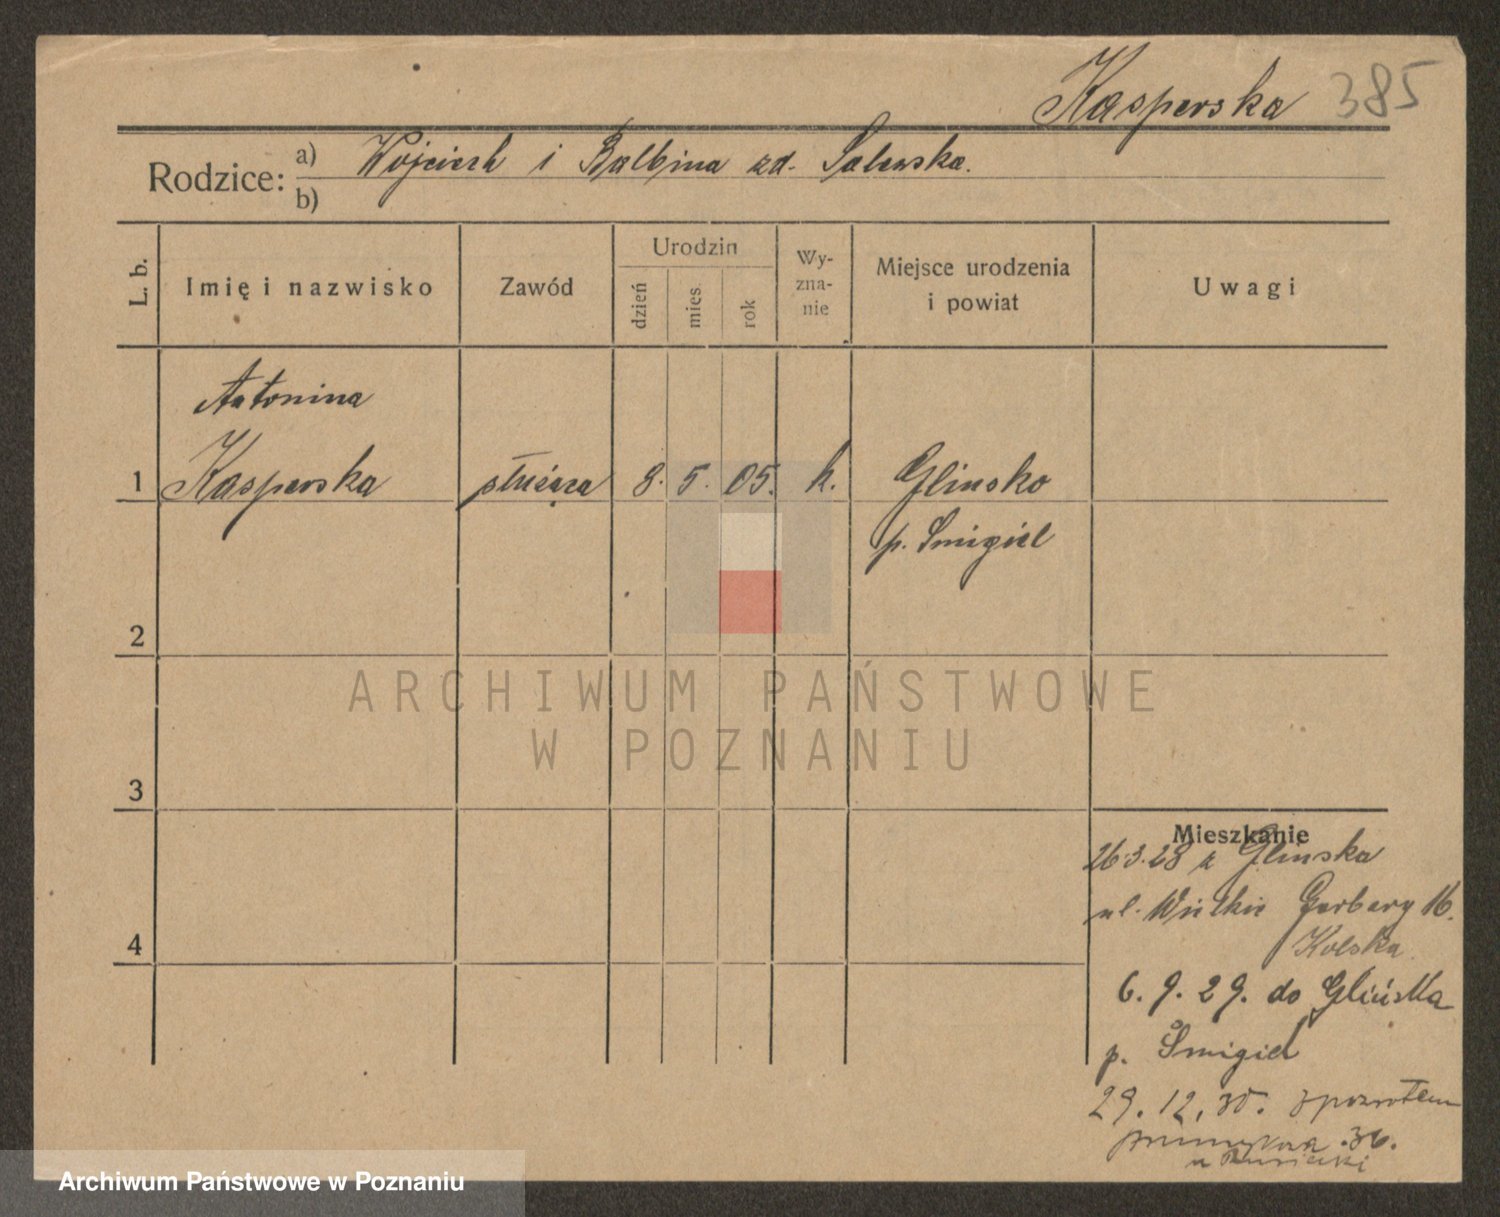 Kasperska 385
Rodzice: a) Wojciech i Balbina zd.
b)
L. b.
Imię i nazwisko
Zawód
Urodzin
dzień
mies.
rok
Wy-
zna-
nie
Miejsce urodzenia
i powiat
Uwagi
Antonina
1 Kasperska służąca 8. 5. 05. k. Glinsko
p. Śmigiel
2
ARCHIWUM PAŃSTWOWE
W POZNANIU
3
Mieszkanie
26.3.28 z Glinska
ul. Wielkie Garbary 16.
4
6. 9. 29. do Glińska
p. Śmigiel
29. 12. 30. z powrotem
36.
Archiwum Państwowe w Poznaniu